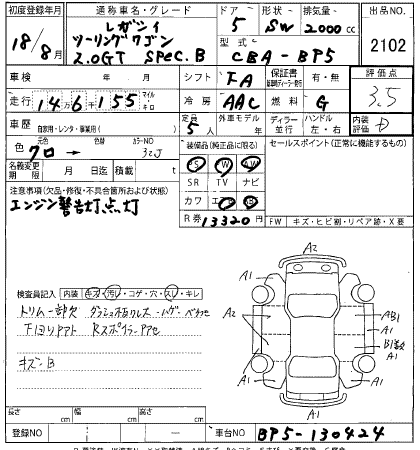 初度登録年月 通称車名・グレード ドア 形状 排気量 出品NO.
18/8月 レガシィ ツーリングワゴン 2.0GT SPEC.B 5 SW 2000cc 2102
型式 CBA-BP5
車検 年 月 シフト FA 保証書 有・無 評価点 3.5
走行 14万6千155 マイル キロ 冷房 AAC 燃料 G
車歴 自家用・レンタ・事業用( ) 定員 5人 外車モデル 年 ディーラー 並行 ハンドル 左・右 内装評価 D
色 元色 クロ → 色替 カラーNO 32J
装備品(純正品に限る) セールスポイント(正常に機能するもの)
名義変更期限 月 日迄 積載量 t
PS PW AW
SR TV ナビ
カワ エアB AB
注意事項(欠品・修復・不具合箇所および状態)
エンジン警告灯点灯
R券 13320円
FW キズ・ヒビ割・リペア跡・X要
検査員記入 内装 キズ・汚レ・コゲ・穴・スレ・キレ
トリム一部欠
キズンB
A2
A1 A1
A2 AB1
A1
A1 A1
A1
長さ cm 幅 cm 高さ cm
登録NO 車台NO BP5-130424